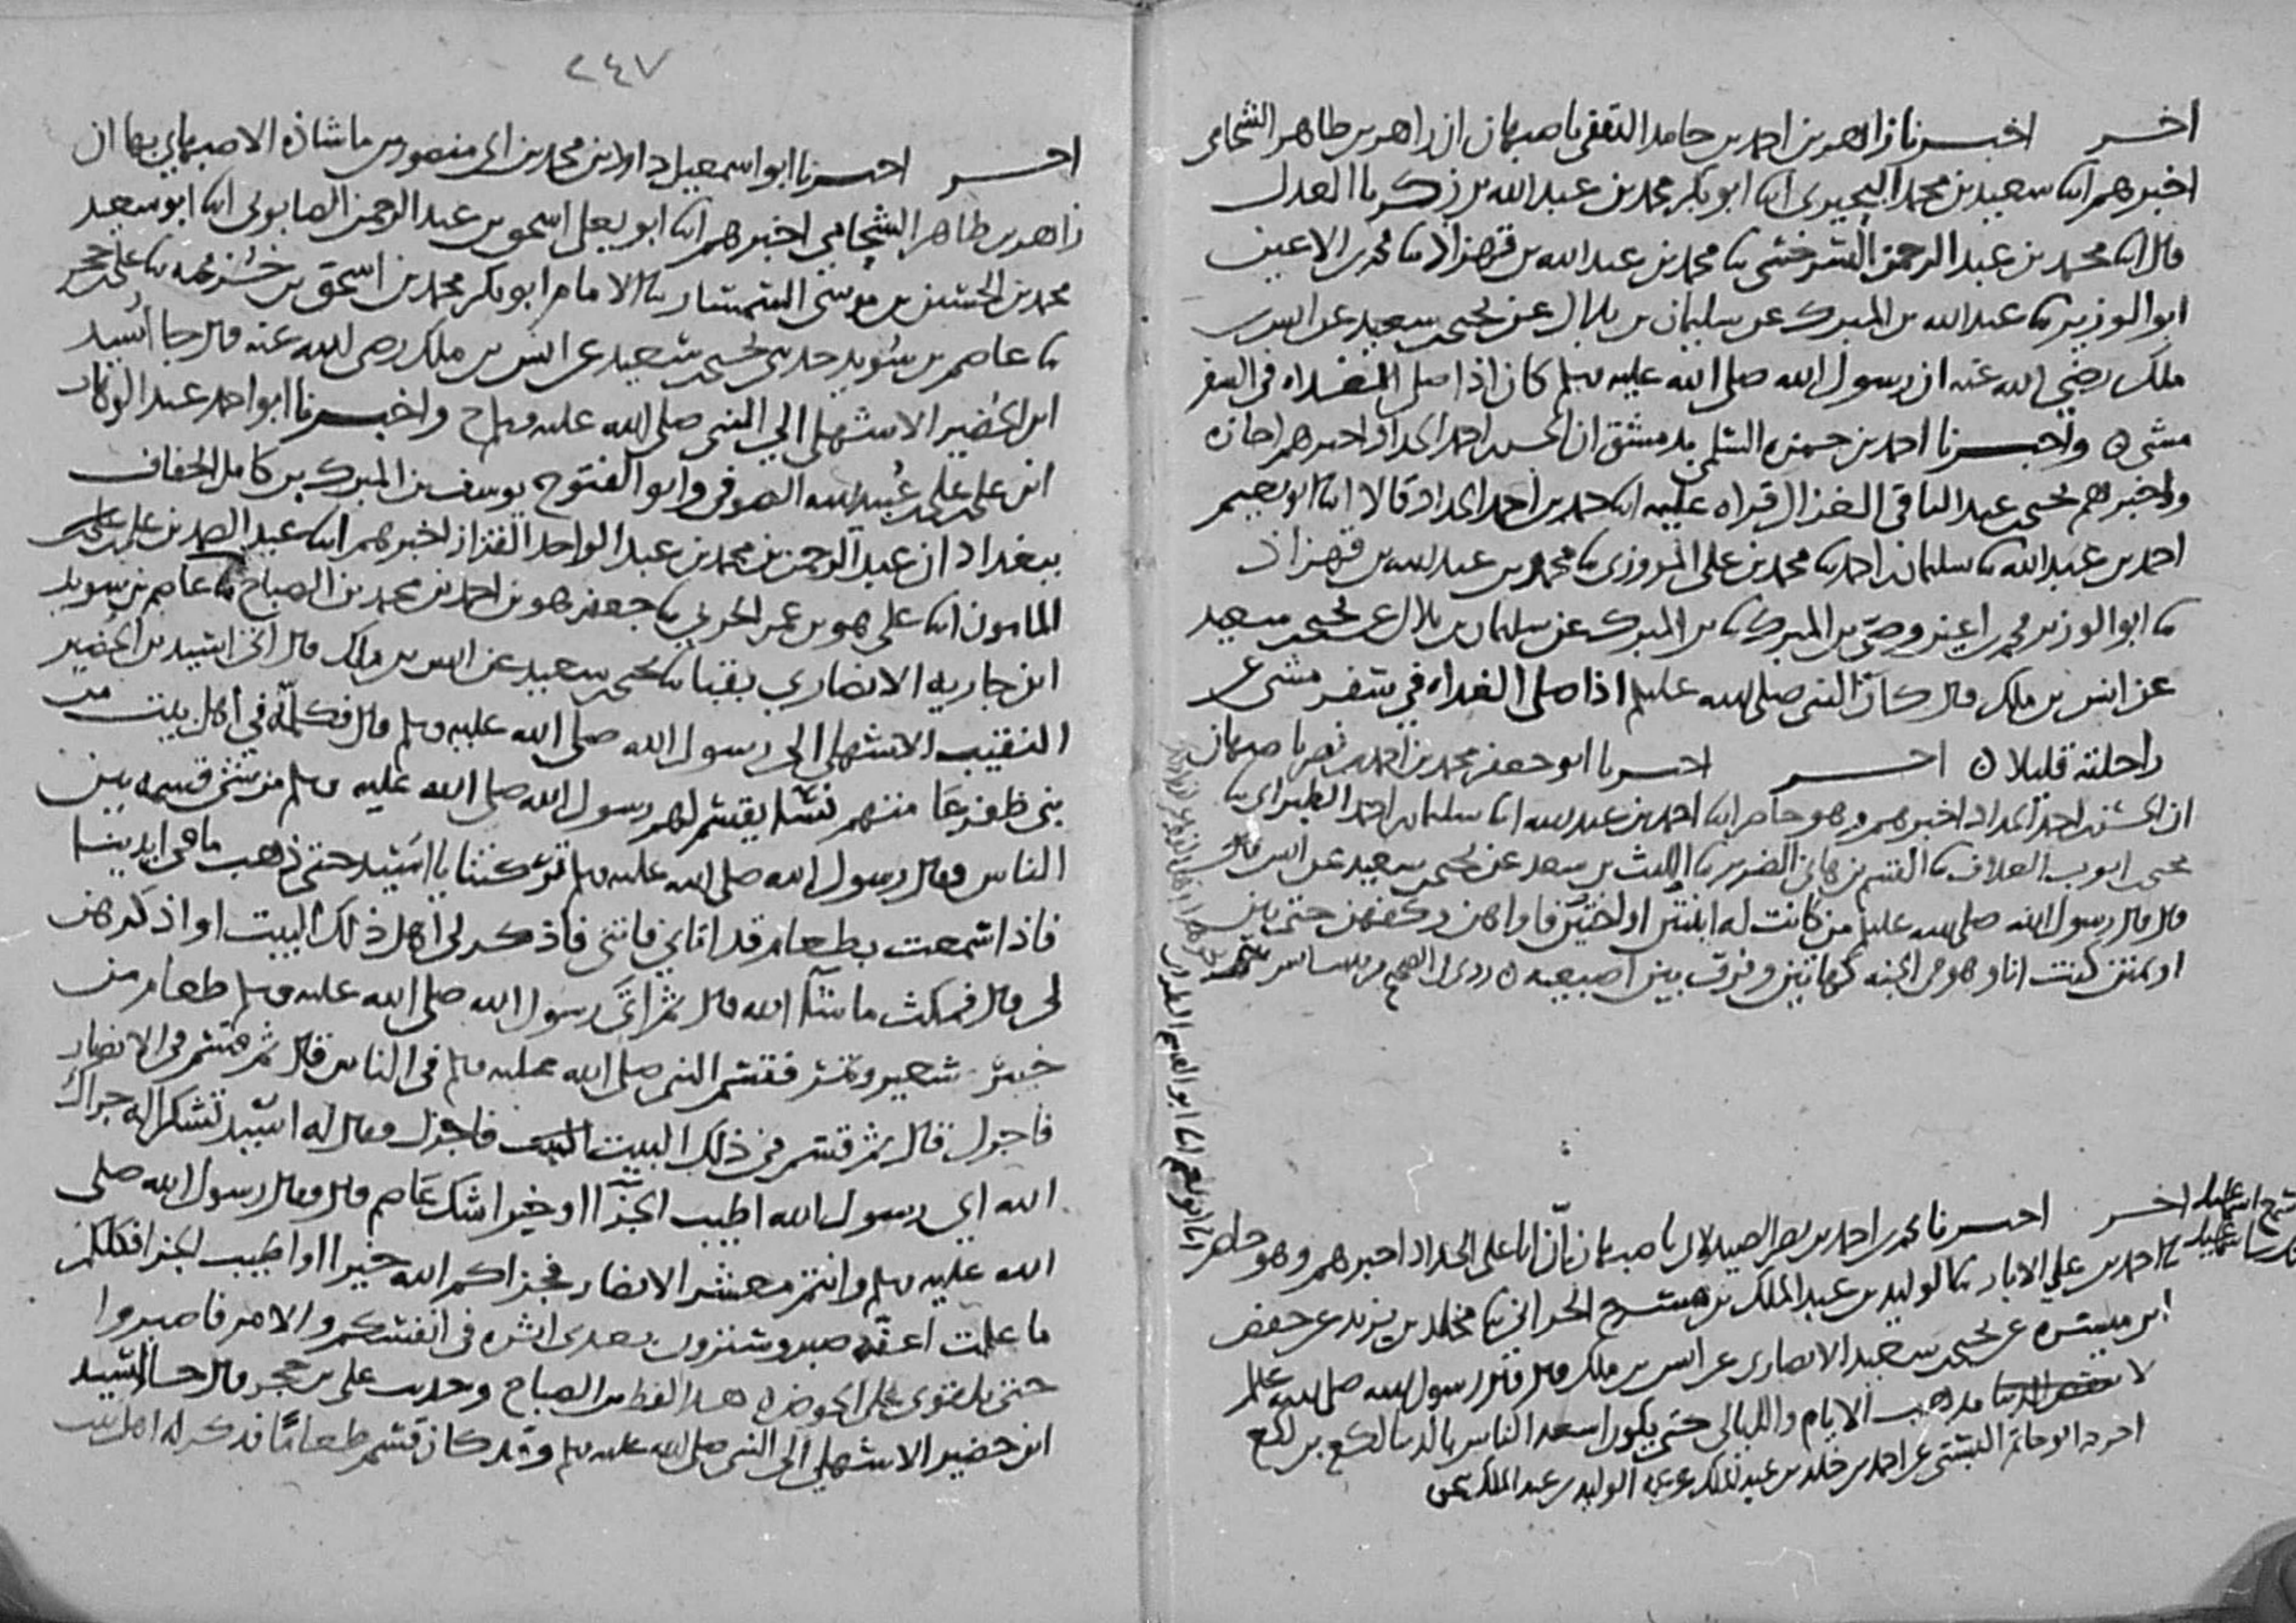 اخـــر اخبــرنا زاهر بن احمد بن حامد الثقفي باصبهان ان زاهر بن طاهر الشحامي
اخبرهم ابنا سعيد بن محمد البحيري ابنا ابو بكر محمد بن عبد الله بن زكريا العدل
قال ابنا محمد بن عبد الرحمن السرخسي ثنا محمد بن عبد الله بن قهزاد ثنا محمد بن الاعين
ابو الوزير ثنا عبد الله بن المبرك عن سليمان بن بلال عن يحيى بن سعيد عن انس بن
ملك رضي الله عنه ان رسول الله صلى الله عليه وسلم كان اذا صلى الغداه في السفر
مشى ه واخبــرنا احمد بن حمزه السلمي بدمشق ان الحسن بن احمد الحداد اخبرهم اجازه
واخبرهم يحيى بن عبد الباقي الغزال قراه عليه ابنا حمد بن احمد الحداد قالا ابنا ابو نعيم
احمد بن عبد الله ثنا سليمان بن احمد ثنا محمد بن علي المروزي ثنا محمد بن عبد الله بن قهزاذ
ثنا ابو الوزير محمد بن اعين وصي بن المبرك ثنا بن المبرك عن سليمان بن بلال عن يحيى بن سعيد
عن انس بن ملك قال كان النبي صلى الله عليه وسلم اذا صلى الغداه في سفر مشى عن
راحلته قليلا ه اخـــر اخبــرنا ابو جعفر محمد بن احمد بن نصر باصبهان
ان الحسن بن احمد الحداد اخبرهم وهو حاضر ابنا احمد بن عبد الله ابنا سليمان بن احمد الطبراني ثنا
يحيى بن ايوب العلاف ثنا القسم بن هاني الضرير ثنا الليث بن سعد عن يحيى بن سعيد عن انس قال
قال قال رسول الله صلى الله عليه وسلم من كانت له ابنتين او اختين فاواهن وكفهن حتى يبن
او يمتن كنت انا وهو في الجنه كهاتين وفرق بين اصبعيه ه روى في الصحيح
ابنا ابو نعيم ابنا ابو القاسم الطبراني
اخـــر اخبــرنا محمد بن احمد بن نصر الصيدلاني باصبهان ان ابا علي الحداد اخبرهم وهو حاضر
ثنا احمد بن علي الابار ثنا الوليد بن عبد الملك بن مسرح الحراني ثنا مخلد بن يزيد عن حفص
ابن ميسره عن يحيى بن سعيد الانصاري عن انس بن ملك قال قال رسول الله صلى الله عليه وسلم
لا تذهب الايام والليالي حتى يكون اسعد الناس بالدنيا لكع بن لكع
اخرجه ابو حاتم البستي عن احمد بن خلد بن عبد الملك عن عمه الوليد بن عبد الملك
٢٤٧
اخـــر اخبــرنا ابو اسمعيل داود بن محمد بن ابي منصور بن ماشاذه الاصبهاني بها ان
زاهر بن طاهر الشحامي اخبرهم ابنا ابو يعلى اسحق بن عبد الرحمن الصابوني ابنا ابو سعيد
محمد بن الحسين بن موسى السمسار ثنا الامام ابو بكر محمد بن اسحق بن خزيمه ثنا علي بن حجر
ثنا عاصم بن سويد حدثني يحيى بن سعيد عن انس بن ملك رضي الله عنه قال جا اسيد
ابن الحضير الاشهلي الى النبي صلى الله عليه وسلم ح واخبــرنا ابو احمد عبد الوهاب
ابن علي بن علي بن عبيد الله الصوفي وابو الفتوح يوسف بن المبرك بن كامل الخفاف
ببغداد ان عبد الرحمن بن محمد بن عبد الواحد القزاز اخبرهم ابنا عبد الصمد بن علي بن
المامون ابنا علي هو بن عمر الحربي ثنا جعفر هو بن احمد بن محمد بن الصباح ثنا عاصم بن سويد
ابن جاريه الانصاري بقبا ثنا يحيى بن سعيد عن انس بن ملك قال اتى اسيد بن الحضير
النقيب الاشهلي الى رسول الله صلى الله عليه وسلم قال فكلمه في اهل بيت من
بني ظفر عامتهم نسا يقسم لهم رسول الله صلى الله عليه وسلم من شي قسمه بين
الناس فقال رسول الله صلى الله عليه وسلم تركتنا يا اسيد حتى ذهب ما في ايدينا
فاذا سمعت بطعام قد اتاني فاتني فاذكر لي اهل ذلك البيت او اذكرهن
لي قال فمكث ما شا الله قال ثم اتى رسول الله صلى الله عليه وسلم طعام من
خيبر شعير وتمر فقسم النبي صلى الله عليه وسلم في الناس قال ثم قسم في الانصار
فاجزل قال ثم قسم في ذلك البيت فاجزل فقال له اسيد تشكرا له جزاك
الله اي رسول الله اطيب الجزا او خيرا شك عاصم قال فقال رسول الله صلى
الله عليه وسلم وانتم معشر الانصار فجزاكم الله خيرا او اطيب الجزا فكلكم
ما علمت اعفه صبر وسترون بعدي اثره في القسم والامر فاصبروا
حتى تلقوني على الحوض ه هذا لفظ بن الصباح وحديث علي بن حجر قال جا اسيد
ابن حضير الاشهلي الى النبي صلى الله عليه وسلم وقد كان قسم طعاما فذكر له اهل بيت